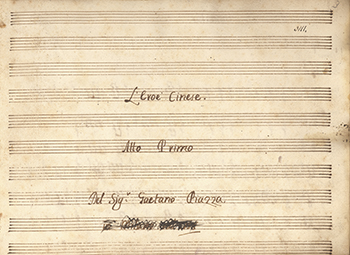 L'Eroe Cinese.
Atto Primo
Del Sig.r Gaetano Piazza.